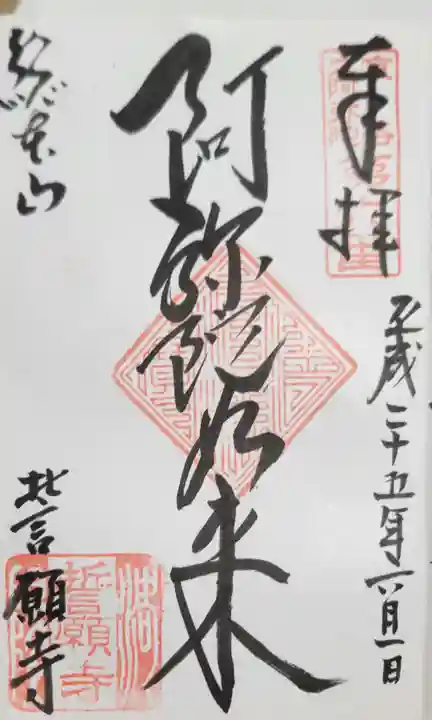 奉拝
平成二十五年六月一日
阿弥陀如来
総本山
誓願寺
誓願寺